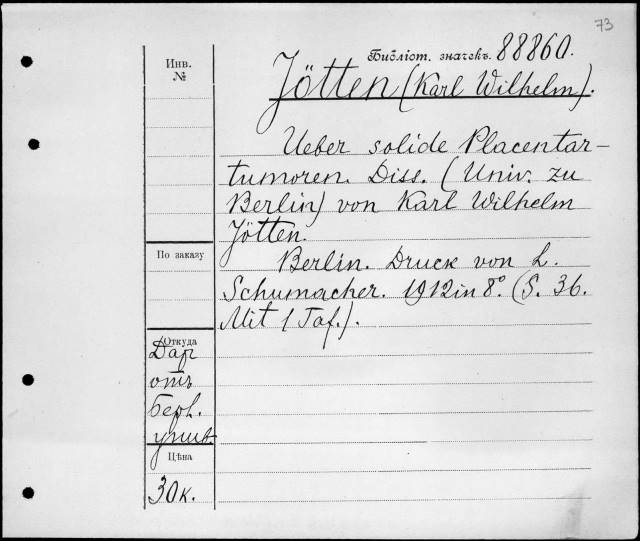 73
Библіот. значекъ. 88860.
Инв.
№
Jötten (Karl Wilhelm).
Ueber solide Placentar-
tumoren. Diss. (Univ. zu
Berlin) von Karl Wilhelm
Jötten.
По заказу
Berlin. Druck von L.
Schumacher. 1912 in 8°. (S. 36.
Mit 1 Taf.).
Откуда
Дар
отъ
Берл.
унив.
Цѣна
30 к.